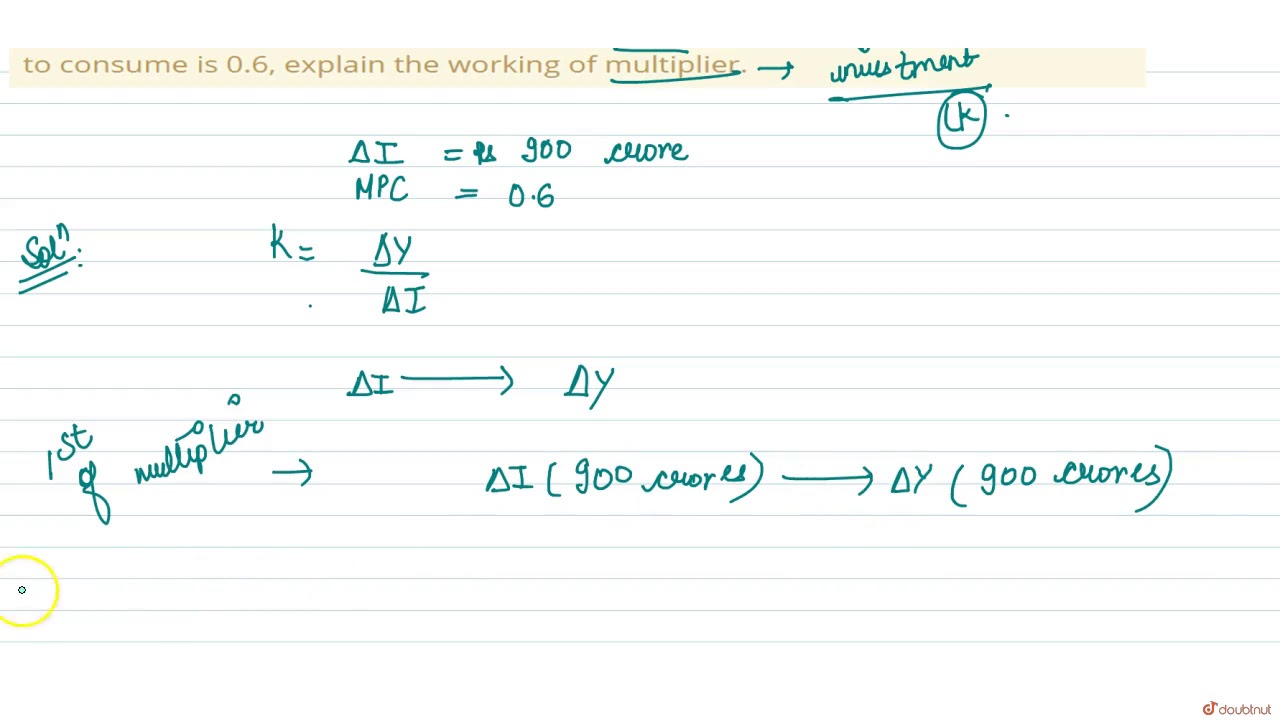 to consume is 0.6, explain the working of multiplier. → investment
(k) .
ΔI = Rs 900 crore
MPC = 0.6
Solⁿ:
K = ΔY
ΔI
ΔI → ΔY
1st
of multiplier → ΔI (900 crores) → ΔY (900 crores)
doubtnut